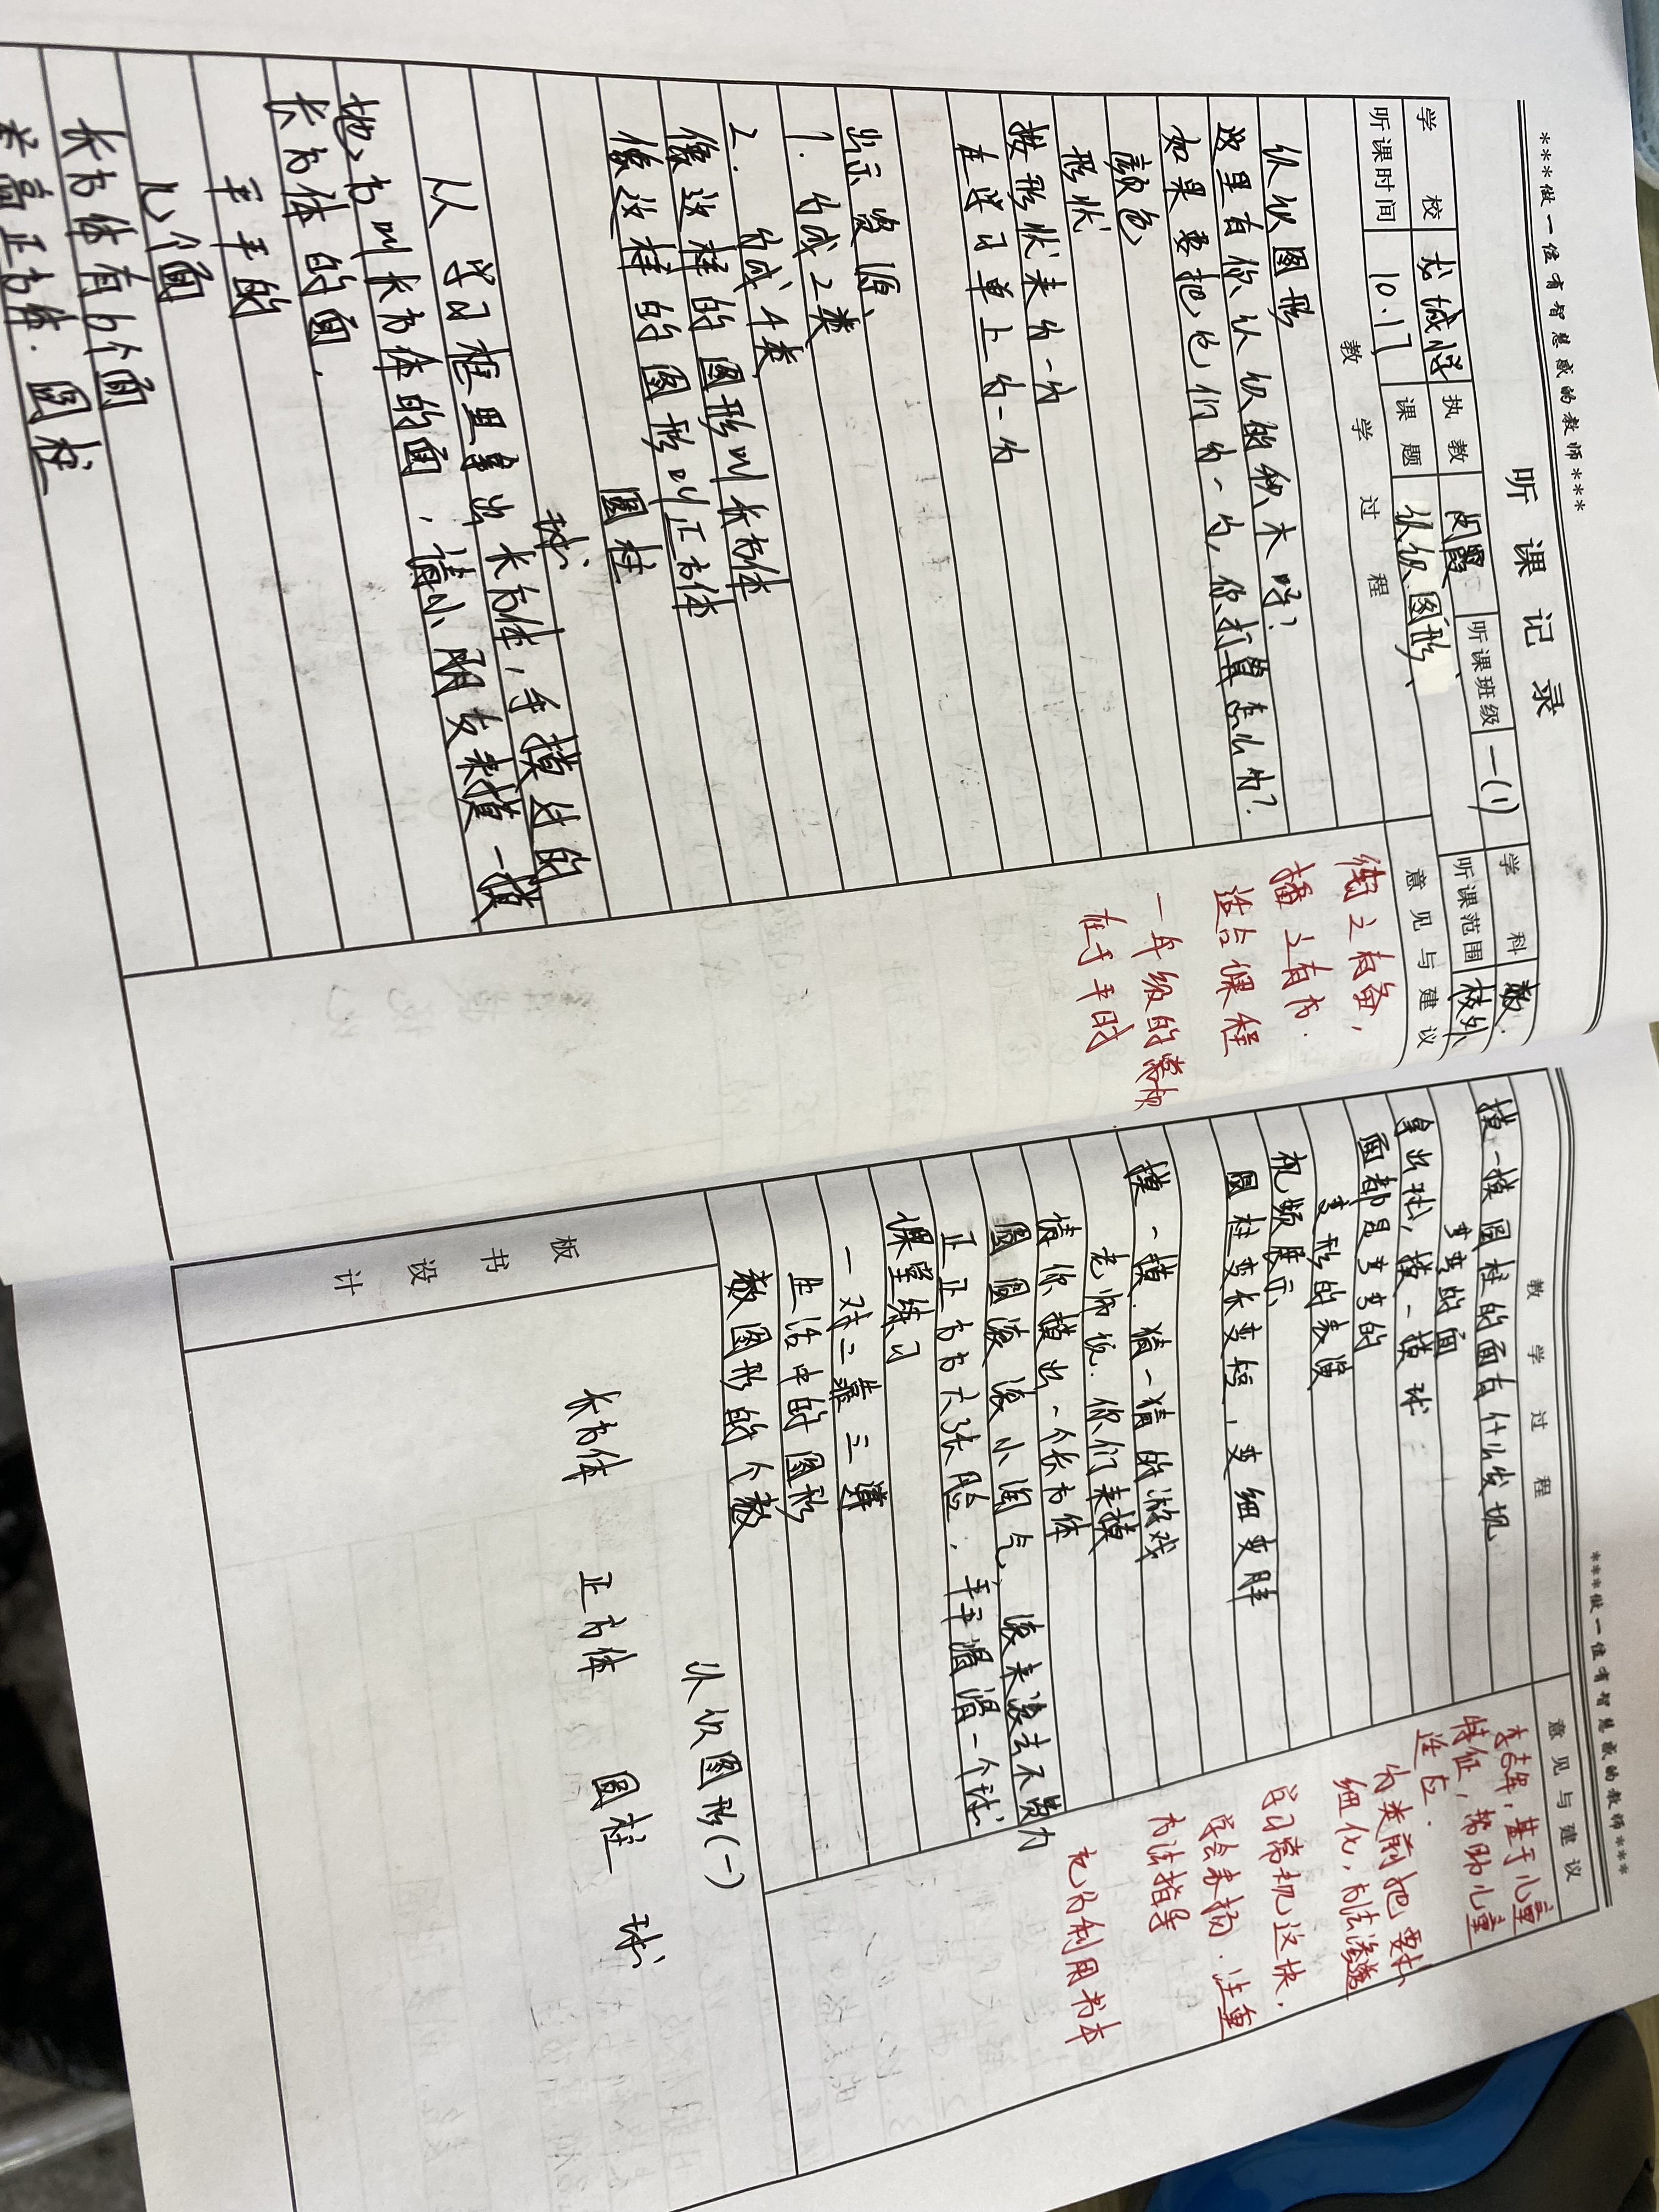 ***做一位有智慧感的教师***
听 课 记 录
学 校 执 教 闵霞 听课班级 一(1) 学 科 数
听课时间 10.17 课 题 认识图形 听课范围 校外
教 学 过 程 意 见 与 建 议
认识图形
这里有你认识的积木呀?
如果要把它们分一分,你打算怎么分?
颜色
形状
按形状来分一分
在学习单上分一分
出示资源
1. 分成2类
2. 分成4类
像这样的图形叫长方体
像这样的图形叫正方体
圆柱
球
从学习框里拿出长方体,手摸过的
地方叫长方体的面,请小朋友来摸一摸
长方体的面.
平平的
几个面
长方体有6个面
正方体. 圆柱
有备,
播之有方.
适合课程
一年级的常规
在于平时
***做一位有智慧感的教师***
教 学 过 程 意 见 与 建 议
摸一摸圆柱的面有什么发现
弯弯的面
拿出球,摸一摸球
面都是弯弯的
变形的表演
视频展示
圆柱变长变短,变细变胖
摸一摸.猜一猜的游戏
老师说.你们来摸
请你摸出一个长方体
圆圆滚滚小淘气,滚来滚去不费力
正正方方六张脸.平平滑滑一个球
课堂练习
一对二靠三
生活中的图形
数图形的个数
基于儿童
特征,帮助儿童
适应.
分类前把要求
细化,方法渗透
学习常规这块,
学会表扬.注重
方法指导
充分利用书本
板 书 设 计
认识图形(一)
长方体 正方体 圆柱 球